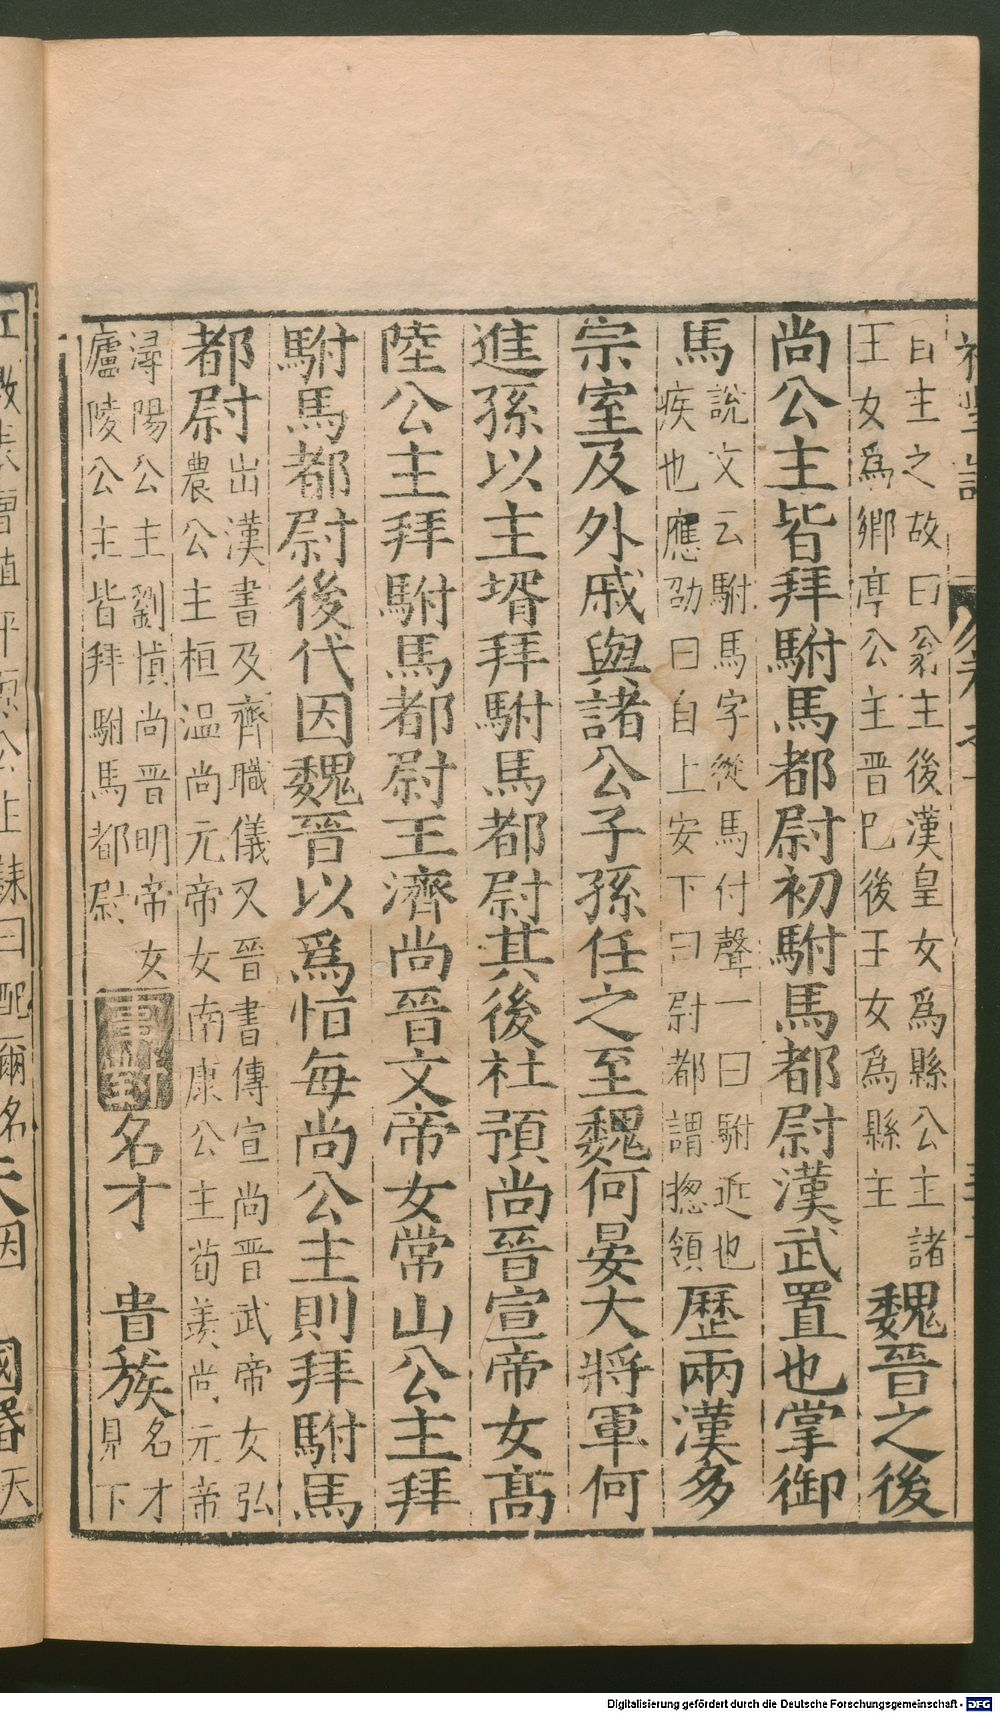 自主之故曰翁主後漢皇女爲縣公主諸
王女爲鄉亭公主晋巳後王女爲縣主
魏晉之後
尚公主皆拜駙馬都尉初駙馬都尉漢武置也掌御
馬
說文云駙馬字從馬付聲一曰駙近也
疾也應劭曰自上安下曰尉都謂揔領
歷兩漢多
宗室及外戚與諸公子孫任之至魏何晏大將軍何
進孫以主壻拜駙馬都尉其後杜預尚晉宣帝女高
陸公主拜駙馬都尉王濟尚晉文帝女常山公主拜
駙馬都尉後代因魏晉以爲恒每尚公主則拜駙馬
都尉
出漢書及齊職儀又晉書傳宣尚晋武帝女弘
農公主桓温尚元帝女南康公主荀羨尚元帝
潯陽公主劉惔尚晋明帝女
廬陵公主皆拜駙馬都尉
事對
名才 貴族
名才
見下
Digitalisierung gefördert durch die Deutsche Forschungsgemeinschaft - DFG